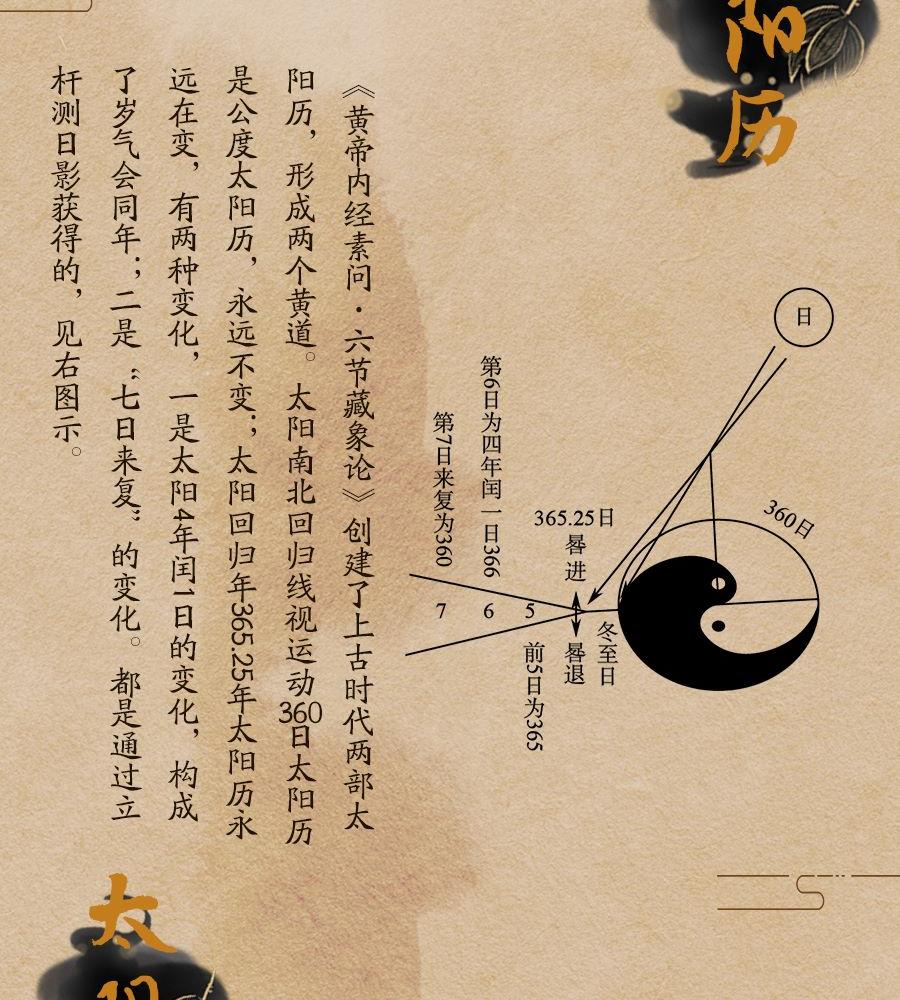 阳历
《黄帝内经素问·六节藏象论》创建了上古时代两部太
阳历，形成两个黄道。太阳南北回归线视运动360日太阳历
是公度太阳历，永远不变；太阳回归年365.25年太阳历永
远在变，有两种变化，一是太阳4年闰1日的变化，构成
了岁气会同年；二是“七日来复”的变化。都是通过立
杆测日影获得的，见右图示。
日
360日
365.25日
晷进
晷退
冬至日
前5日为365
第6日为四年闰一日366
第7日来复为360
7 6 5
太阳